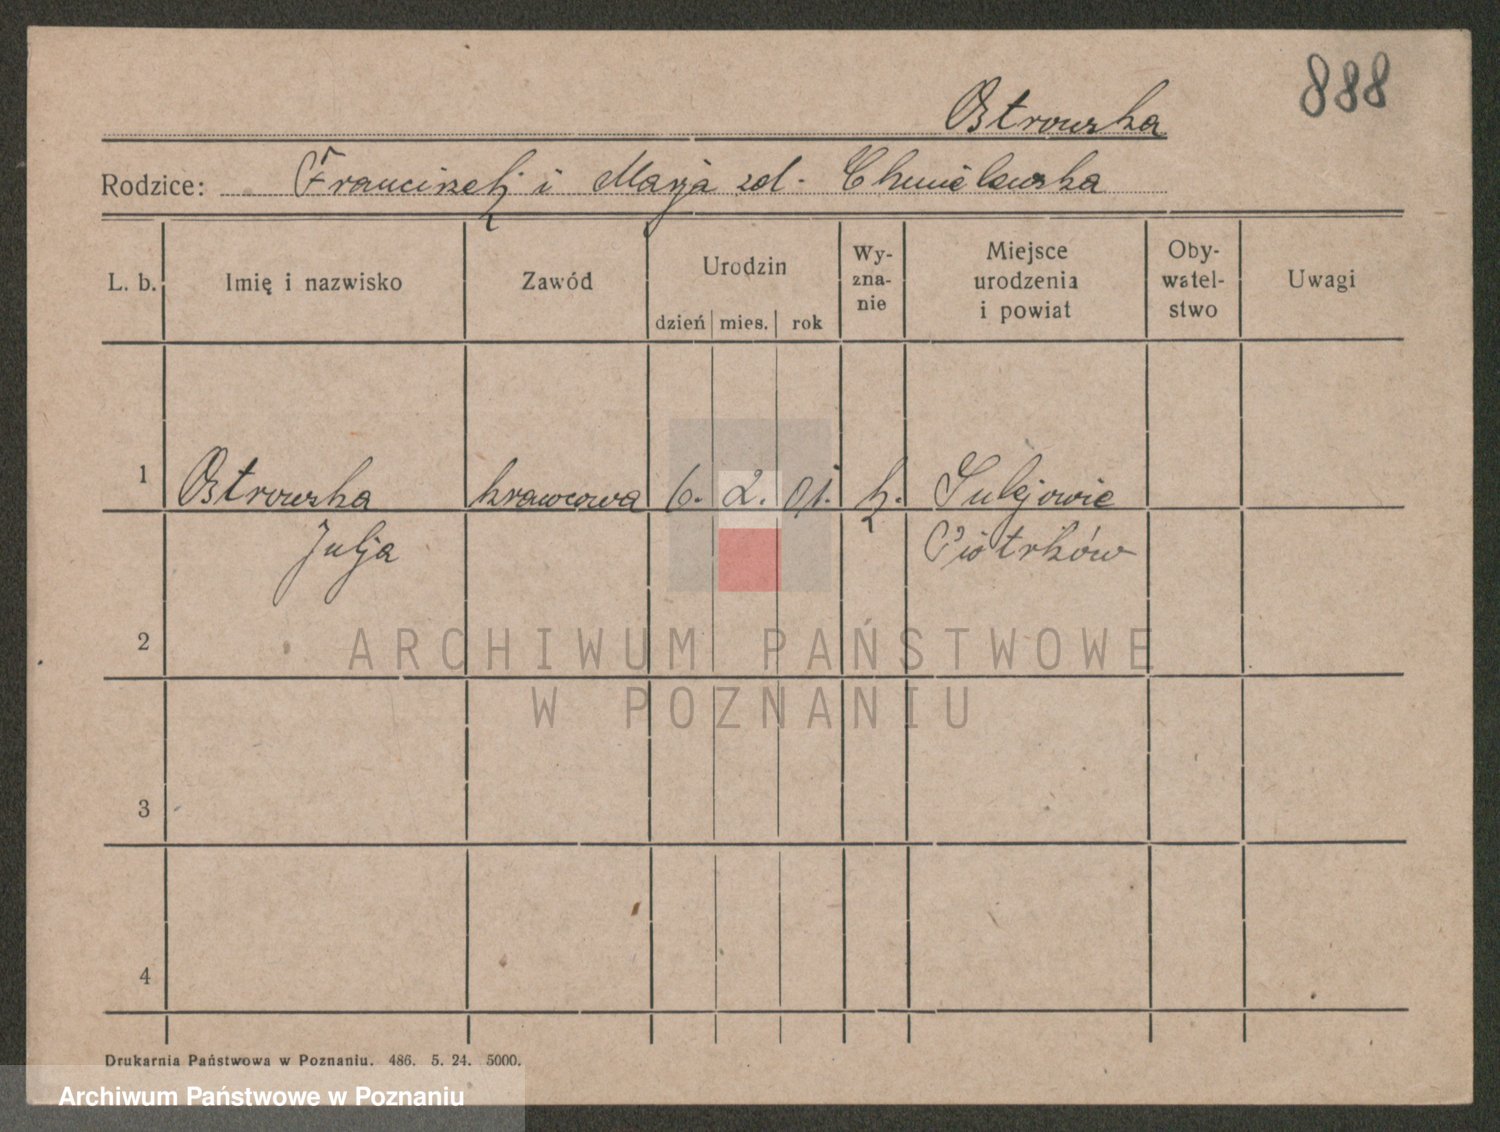 888
Ostrowska
Rodzice: Franciszek i Marja zd. Chmielewska
L. b. Imię i nazwisko Zawód Urodzin dzień mies. rok Wy-zna-nie Miejsce urodzenia i powiat Oby-watel-stwo Uwagi
1 Ostrowska krawcowa 6. 2. 01. k. Sulejowie
Julja Piotrków
2
ARCHIWUM PAŃSTWOWE
W POZNANIU
3
4
Drukarnia Państwowa w Poznaniu. 486. 5. 24. 5000.
Archiwum Państwowe w Poznaniu